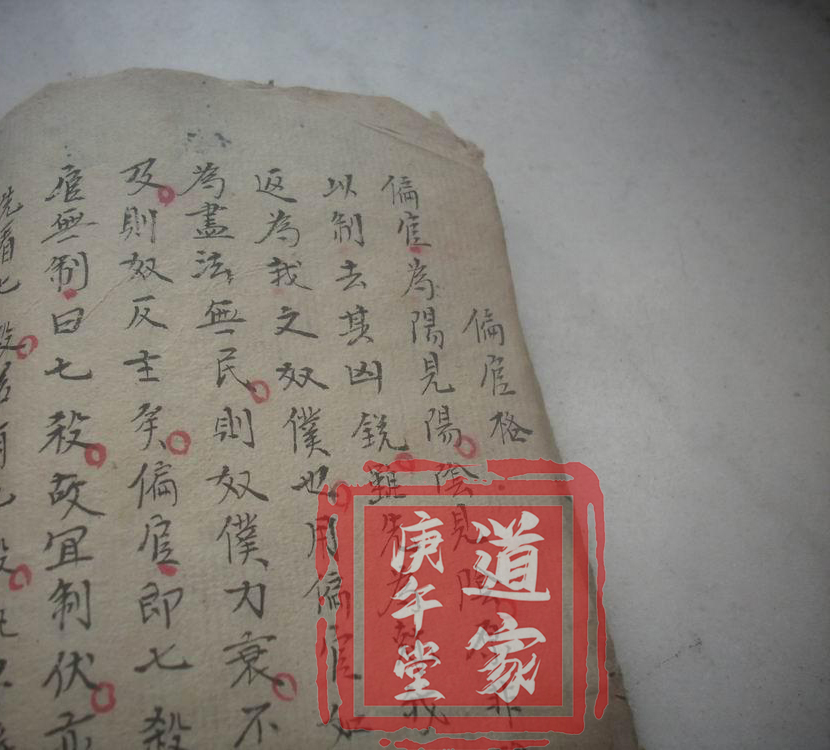 偏官格
偏官為陽見陽陰見陰
以制去其凶銳雖先
返為我之奴僕也用偏官如
為盡法無民則奴僕力衰不
及則奴反主矣偏官即七殺
官無制曰七殺故宜制伏
先看七殺
道家
庚午堂